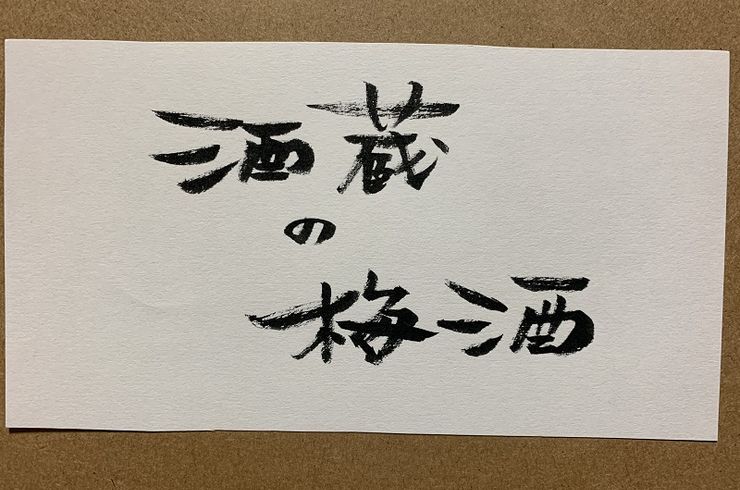 酒蔵
の
梅酒